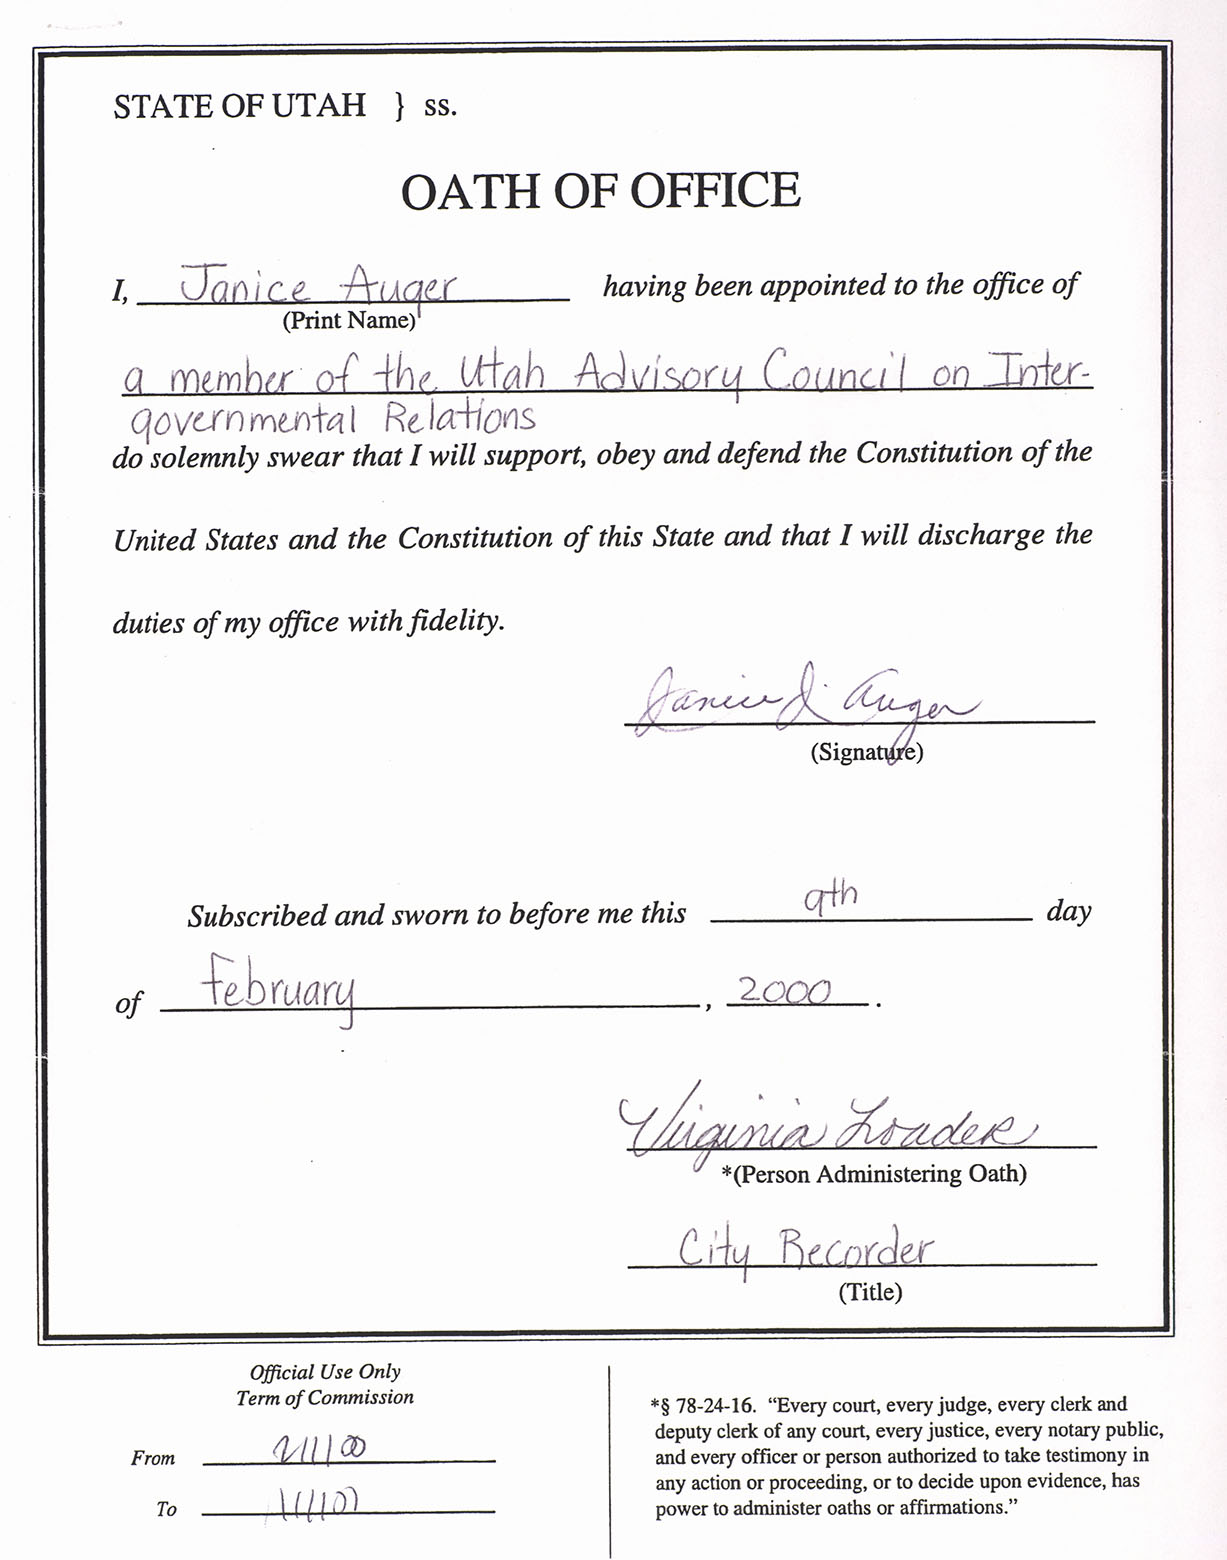 STATE OF UTAH } ss.
OATH OF OFFICE
I, Janice Auger having been appointed to the office of
(Print Name)
a member of the Utah Advisory Council on Inter-
governmental Relations
do solemnly swear that I will support, obey and defend the Constitution of the
United States and the Constitution of this State and that I will discharge the
duties of my office with fidelity.
Janice J. Auger
(Signature)
Subscribed and sworn to before me this 9th day
of February, 2000.
Virginia Loader
*(Person Administering Oath)
City Recorder
(Title)
Official Use Only
Term of Commission
From 2/1/00
To
*§ 78-24-16. “Every court, every judge, every clerk and
deputy clerk of any court, every justice, every notary public,
and every officer or person authorized to take testimony in
any action or proceeding, or to decide upon evidence, has
power to administer oaths or affirmations.”